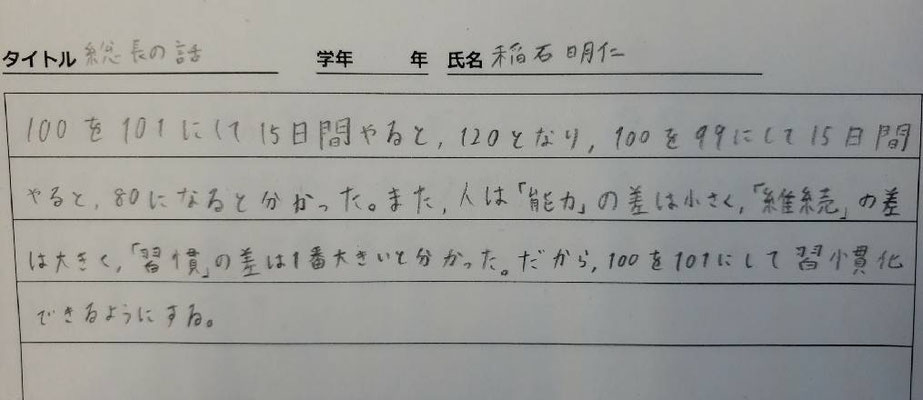 タイトル 総長の話 学年 年 氏名 稲石明仁
100を101にして15日間やると,120となり,100を99にして15日間
やると,80になると分かった。また,人は「能力」の差は小さく,「維続」の差
は大きく,「習慣」の差は1番大きいと分かった。だから,100を101にして習慣化
できるようにする。